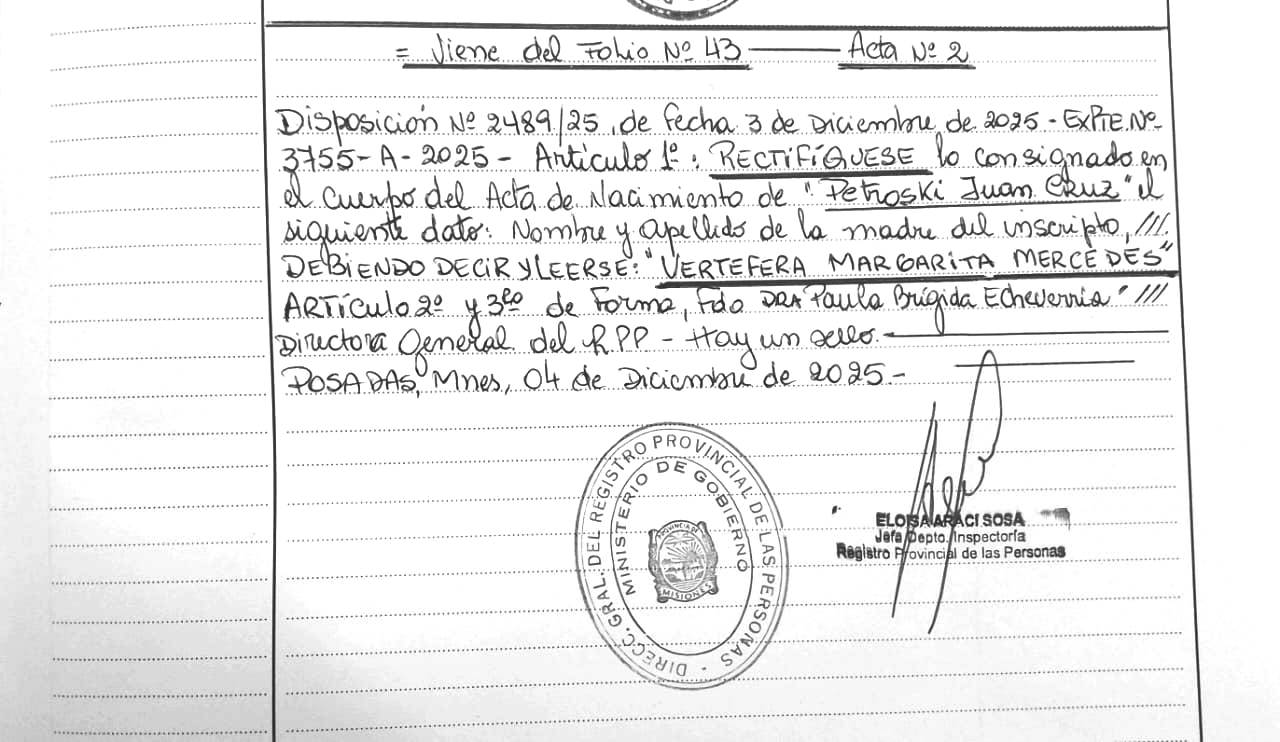 = Viene del Folio Nº 43 ——— Acta Nº 2
Disposición Nº 2489/25, de fecha 3 de Diciembre de 2025 - EXPTE. Nº
3755-A-2025 - Artículo 1º: RECTIFÍQUESE lo consignado en
el cuerpo del Acta de Nacimiento de "Petroski Juan Cruz" el
siguiente dato: Nombre y apellido de la madre del inscripto, ///
DEBIENDO DECIR Y LEERSE: "VERTEFERA MARGARITA MERCEDES"
ARTÍCULO 2º y 3ero de Forma, Fdo DRA Paula Brígida Echeverria" ///
Directora General del RPP - Hay un sello. ———
POSADAS, Mnes, 04 de Diciembre de 2025.-
DIRECC. GRAL. DEL REGISTRO PROVINCIAL DE LAS PERSONAS -
MINISTERIO DE GOBIERNO
PROVINCIA DE
MISIONES
ELOISA ARACI SOSA
Jefa Depto. Inspectoría
Registro Provincial de las Personas